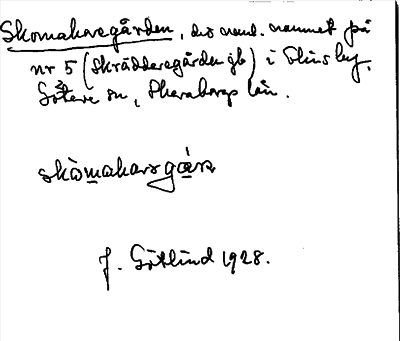 Skomakaregården, det vanl. namnet på
nr 5 (Skräddaregården jb) i by,
Götene sn, Skaraborgs län.
skòmakarsgá̱rn
J. Götlind 1928.